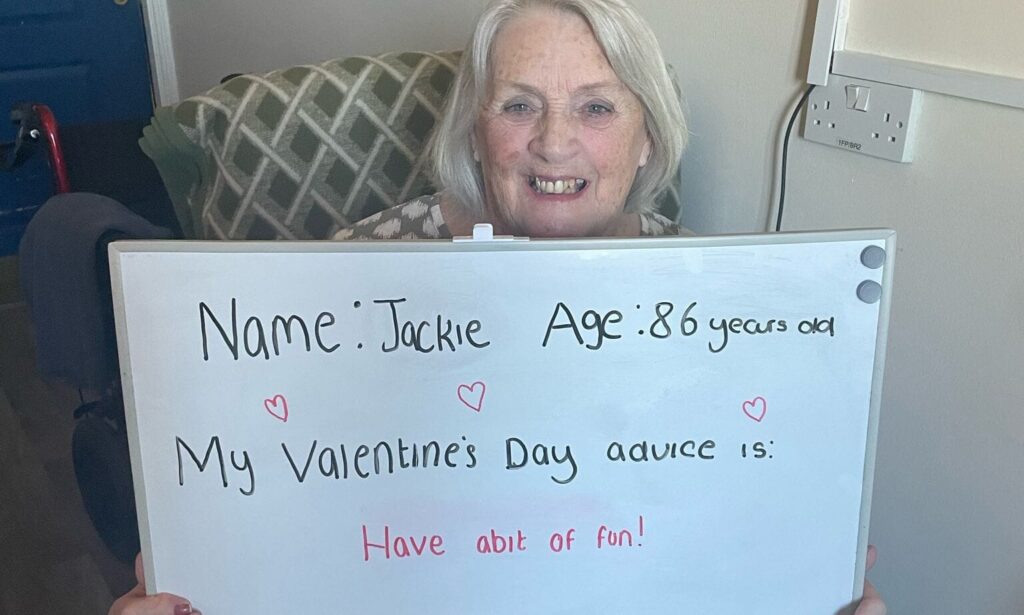 Name: Jackie Age: 86 years old
My Valentine's Day advice is:
Have abit of fun!
1FP/BR2